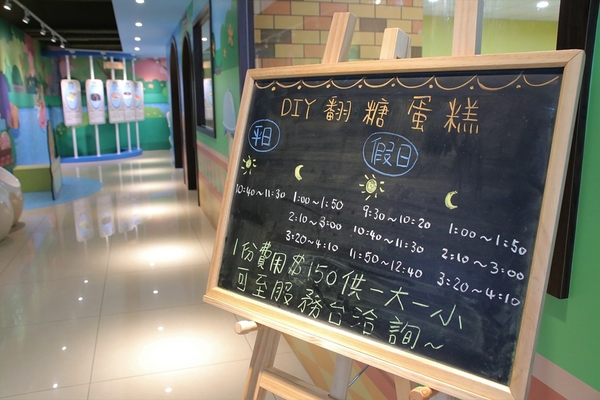 DIY 翻糖蛋糕
平日 假日
10:40~11:30 1:00~1:50 9:30~10:20 1:00~1:50
2:10~3:00 10:40~11:30 2:10~3:00
3:20~4:10 11:50~12:40 3:20~4:10
1份費用$150供一大一小
可至服務台洽詢~